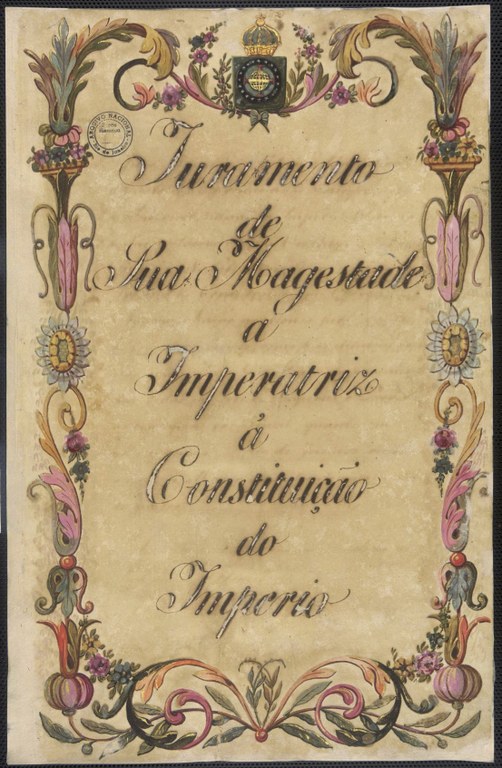 ARQUIVO NACIONAL
Juramento
de
Sua Magestade
a
Imperatriz
á
Constituição
do
Imperio